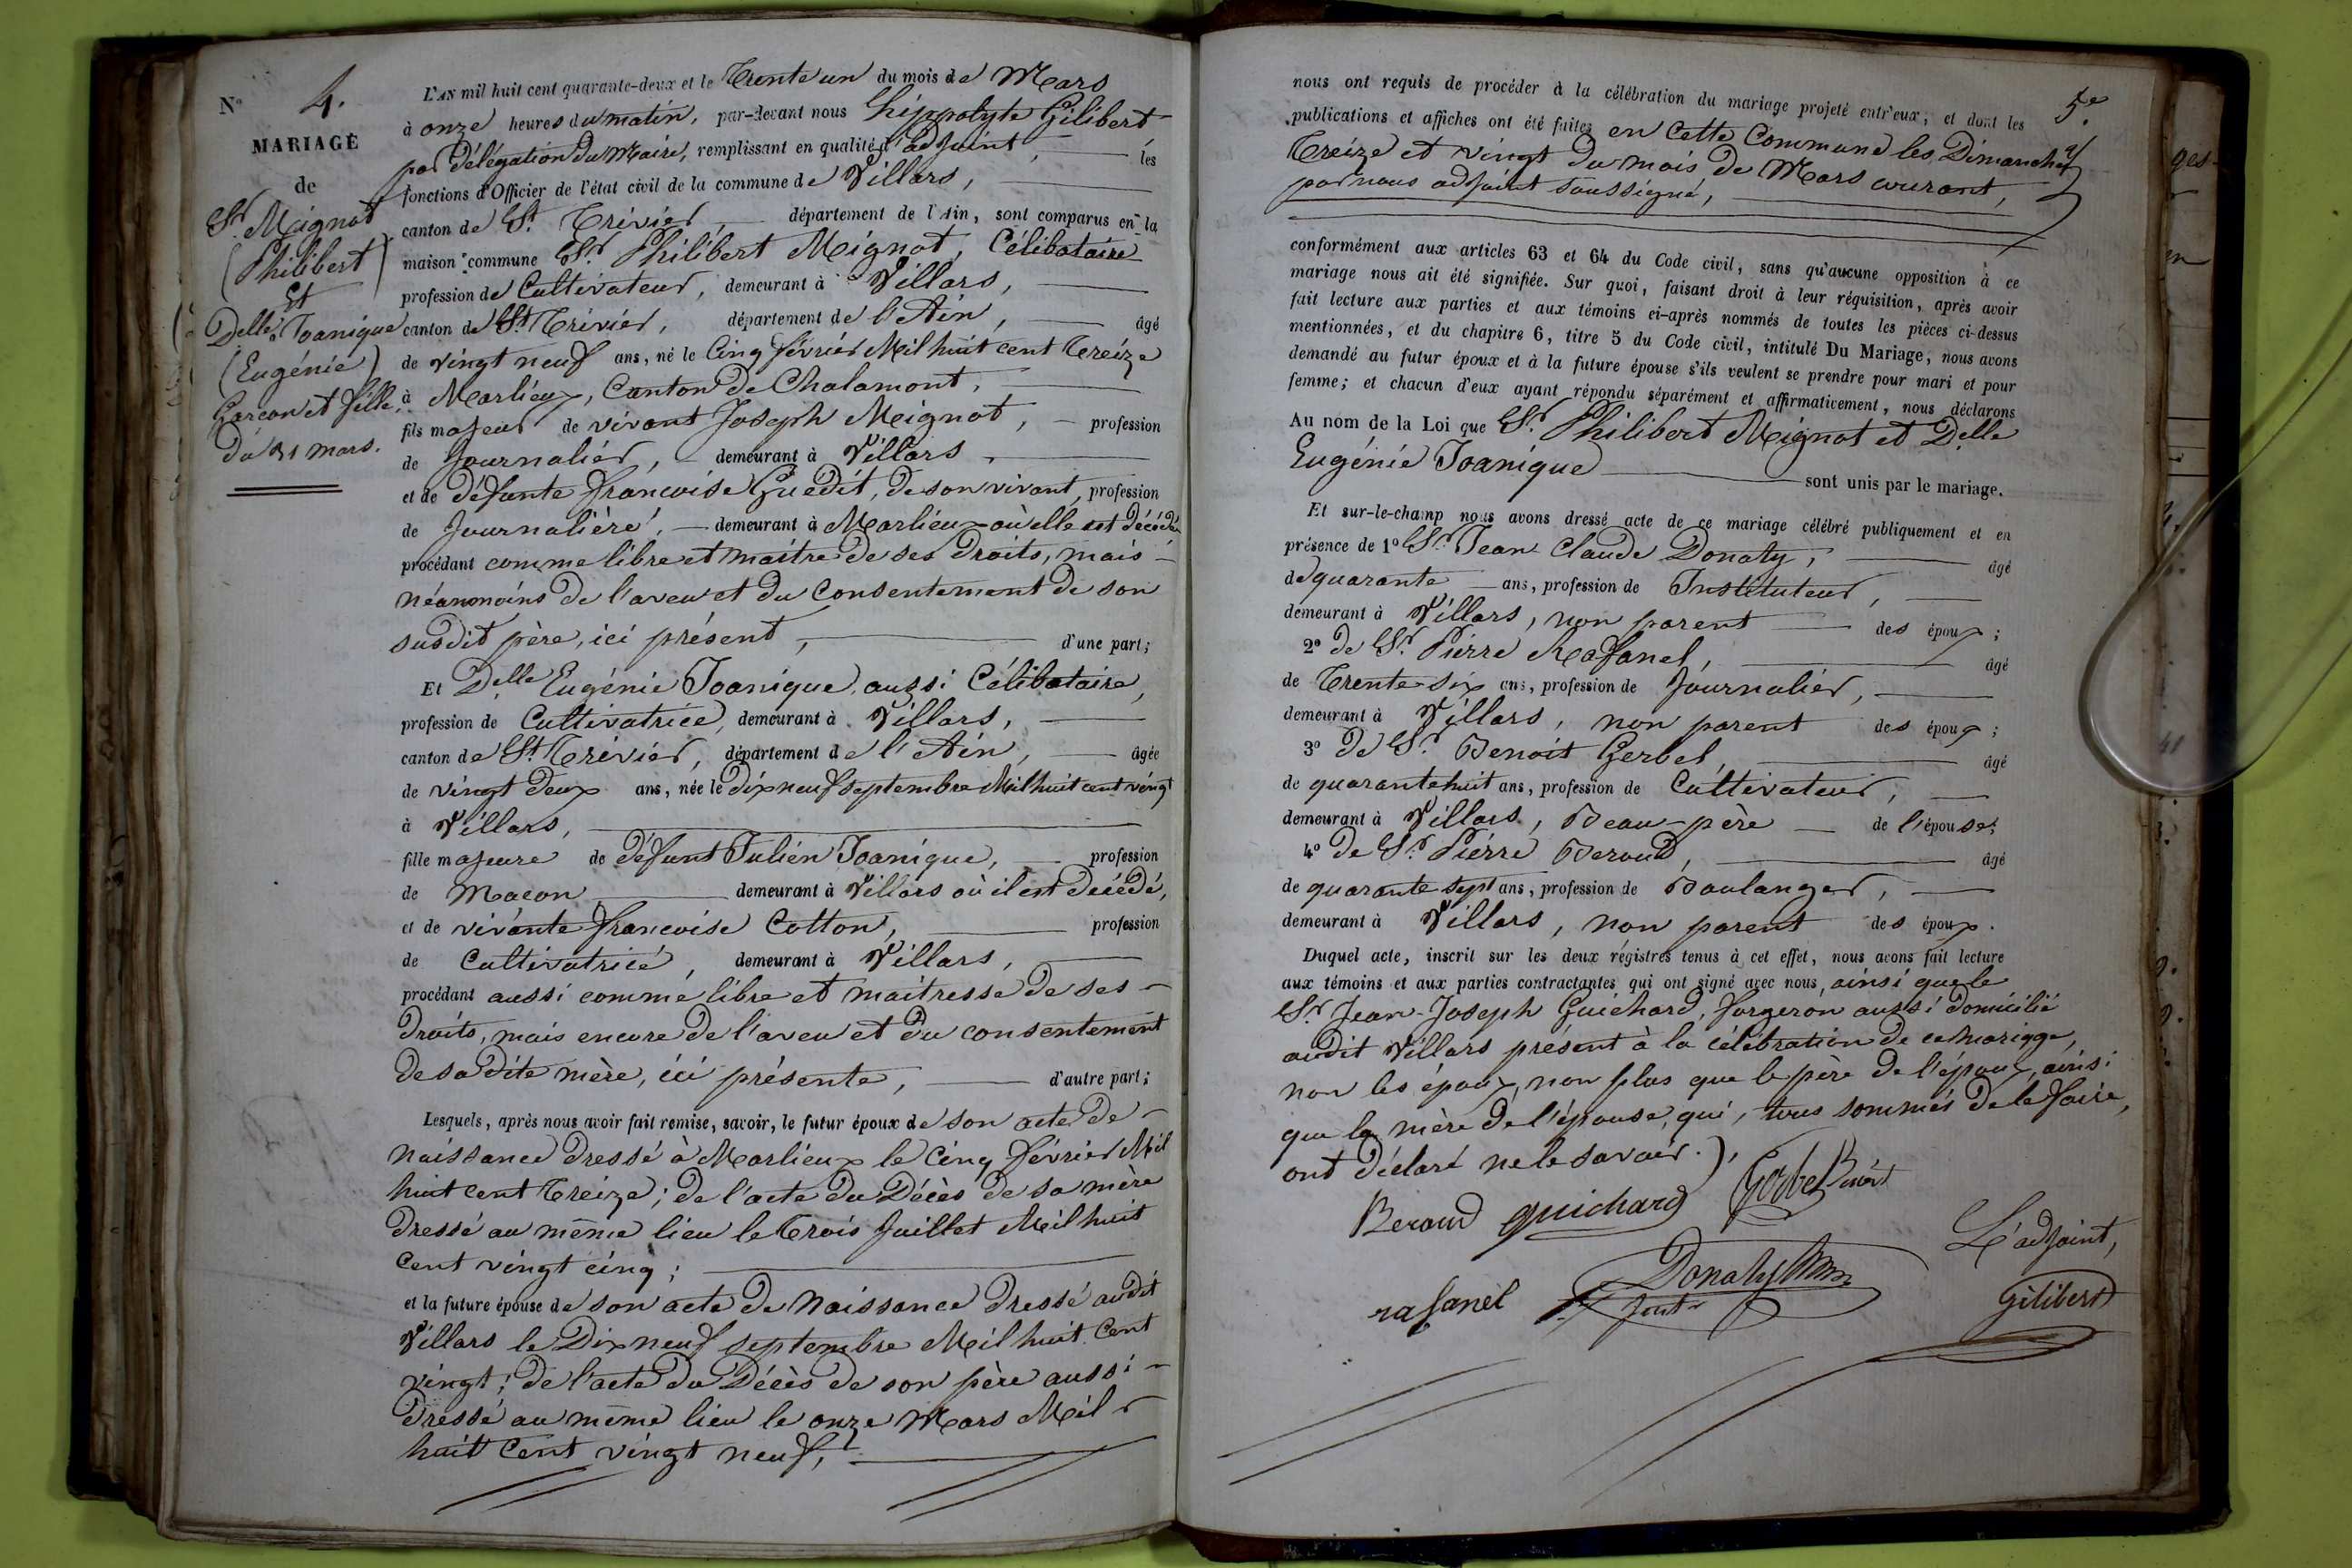 N° 4.
MARIAGE
de
Sr. Meignot
(Philibert)
Et
Delle. Joanique
(Eugénie)
Garçon et fille.
du 31 mars.
L'AN mil huit cent quarante-deux et le Trente un du mois de Mars
à onze heures du matin, par-devant nous hippolyte Gilibert
par délégation du Maire, remplissant en qualité d'adjoint, les
fonctions d'Officier de l'état civil de la commune de Villars,
canton de St. Trivier, département de l'Ain, sont comparus en la
maison commune Sr. Philibert Meignot, Célibataire
profession de Cultivateur, demeurant à Villars,
canton de St. Trivier, département de l'Ain, âgé
de vingt neuf ans, né le Cinq février Mil huit cent Treize
à Marlieux, Canton de Chalamont,
fils majeur de vivant Joseph Meignot, profession
de Journalier, demeurant à Villars,
et de défunte françoise Guedit, de son vivant, profession
de Journalière, demeurant à Marlieux où elle est décédée
procédant comme libre et maitre de ses droits, mais
néanmoins de l'aveu et du Consentement de son
susdit père, ici présent, d'une part;
Et Delle. Eugénie Joanique, aussi Célibataire,
profession de Cultivatrice, demeurant à Villars,
canton de St. Trivier, département de l'Ain, âgée
de vingt deux ans, née le dix neuf septembre Mil huit cent vingt
à Villars,
fille majeure de défunt Julien Joanique, profession
de Maçon demeurant à Villars où il est décédé,
et de vivante françoise Cotton, profession
de Cultivatrice, demeurant à Villars,
procédant aussi comme libre et maitresse de ses
droits, mais encore de l'aveu et du consentement
de sa dite mère, ici présente, d'autre part;
Lesquels, après nous avoir fait remise, savoir, le futur époux de son acte de
naissance dressé à Marlieux le Cinq février Mil
huit cent Treize; de l'acte du Décès de sa mère
dressé au même lieu le Trois Juillet Mil huit
Cent vingt cinq;
et la future épouse de son acte de Naissance dressé audit
Villars le Dix neuf septembre Mil huit Cent
vingt; de l'acte du Décès de son père aussi
dressé au même lieu le onze Mars Mil
huit Cent vingt neuf,
5e.
nous ont requis de procéder à la célébration du mariage projeté entr'eux; et dont les
publications et affiches ont été faites en Cette Commune les Dimanches
Treize et vingt du mois de Mars courant,
par nous adjoint soussigné,
conformément aux articles 63 et 64 du Code civil, sans qu'aucune opposition à ce
mariage nous ait été signifiée. Sur quoi, faisant droit à leur réquisition, après avoir
fait lecture aux parties et aux témoins ci-après nommés de toutes les pièces ci-dessus
mentionnées, et du chapitre 6, titre 5 du Code civil, intitulé Du Mariage, nous avons
demandé au futur époux et à la future épouse s'ils veulent se prendre pour mari et pour
femme; et chacun d'eux ayant répondu séparément et affirmativement, nous déclarons
Au nom de la Loi que Sr. Philibert Meignot et Delle.
Eugénie Joanique sont unis par le mariage.
Et sur-le-champ nous avons dressé acte de ce mariage célébré publiquement et en
présence de 1° Sr. Jean-Claude Donaty, âgé
de quarante ans, profession de Instituteur,
demeurant à Villars, non parent des époux;
2° de Sr. Pierre Rafanel, âgé
de Trente six ans, profession de Journalier,
demeurant à Villars, non parent des époux;
3° de Sr. Benoit Gerbel, âgé
de quarante huit ans, profession de Cultivateur,
demeurant à Villars, Beau-père de l'épouse;
4° de Sr. Pierre Beroud, âgé
de quarante sept ans, profession de Boulanger,
demeurant à Villars, non parent des époux.
Duquel acte, inscrit sur les deux régistres tenus à cet effet, nous avons fait lecture
aux témoins et aux parties contractantes qui ont signé avec nous, ainsi que le
Sr. Jean-Joseph Guichard, forgeron aussi domicilié
audit Villars présent à la célébration de ce mariage,
non les époux, non plus que le père de l'époux, ainsi
que la mère de l'épouse, qui, tous sommés de le faire,
ont déclaré ne le savoir.),
Beroud guichard Gerbel Benoit
L'adjoint,
rafanel Donaty
Gilibert